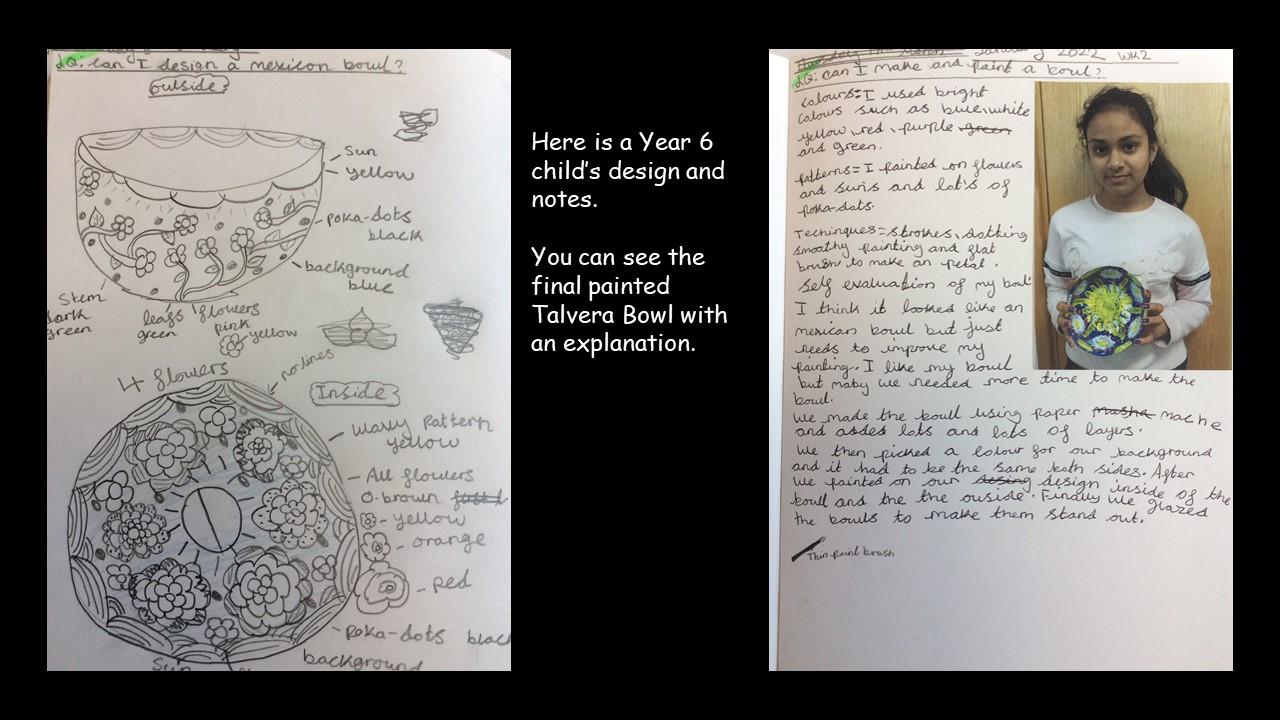 LQ: Can I design a mexican bowl?
outside
Sun
yellow
poka-dots
black
background
blue
Stem
dark
green
leafs
green
flowers
pink
yellow
4 flowers
no lines
Inside
wavy pattern
yellow
All flowers
O-brown
- yellow
- orange
- red
poka-dots black
background
Sun
Here is a Year 6
child's design and
notes.
You can see the
final painted
Talvera Bowl with
an explanation.
January 2022 WK2
LQ: Can I make and paint a bowl?
Colours:= I used bright
colours such as blue, white
yellow, red, purple green
and green.
patterns= I painted on flowers
and suns and lots of
poka-dots.
Techinques= strokes, dotting
smoothy painting and flat
brush to make an petal.
Self evaluation of my bowl
I think it looked like an
mexican bowl but just
needs to improve my
painting. I like my bowl
but maby we needed more time to make the
bowl.
We made the bowl using paper masha mache
and asdes lots and lots of layers.
We then picked a colour for our background
and it had to be the same both sides. After
we painted on our desing design inside of the
bowl and the the ouside. Finally we glazed
the bowls to make them stand out.
Thin paint brush